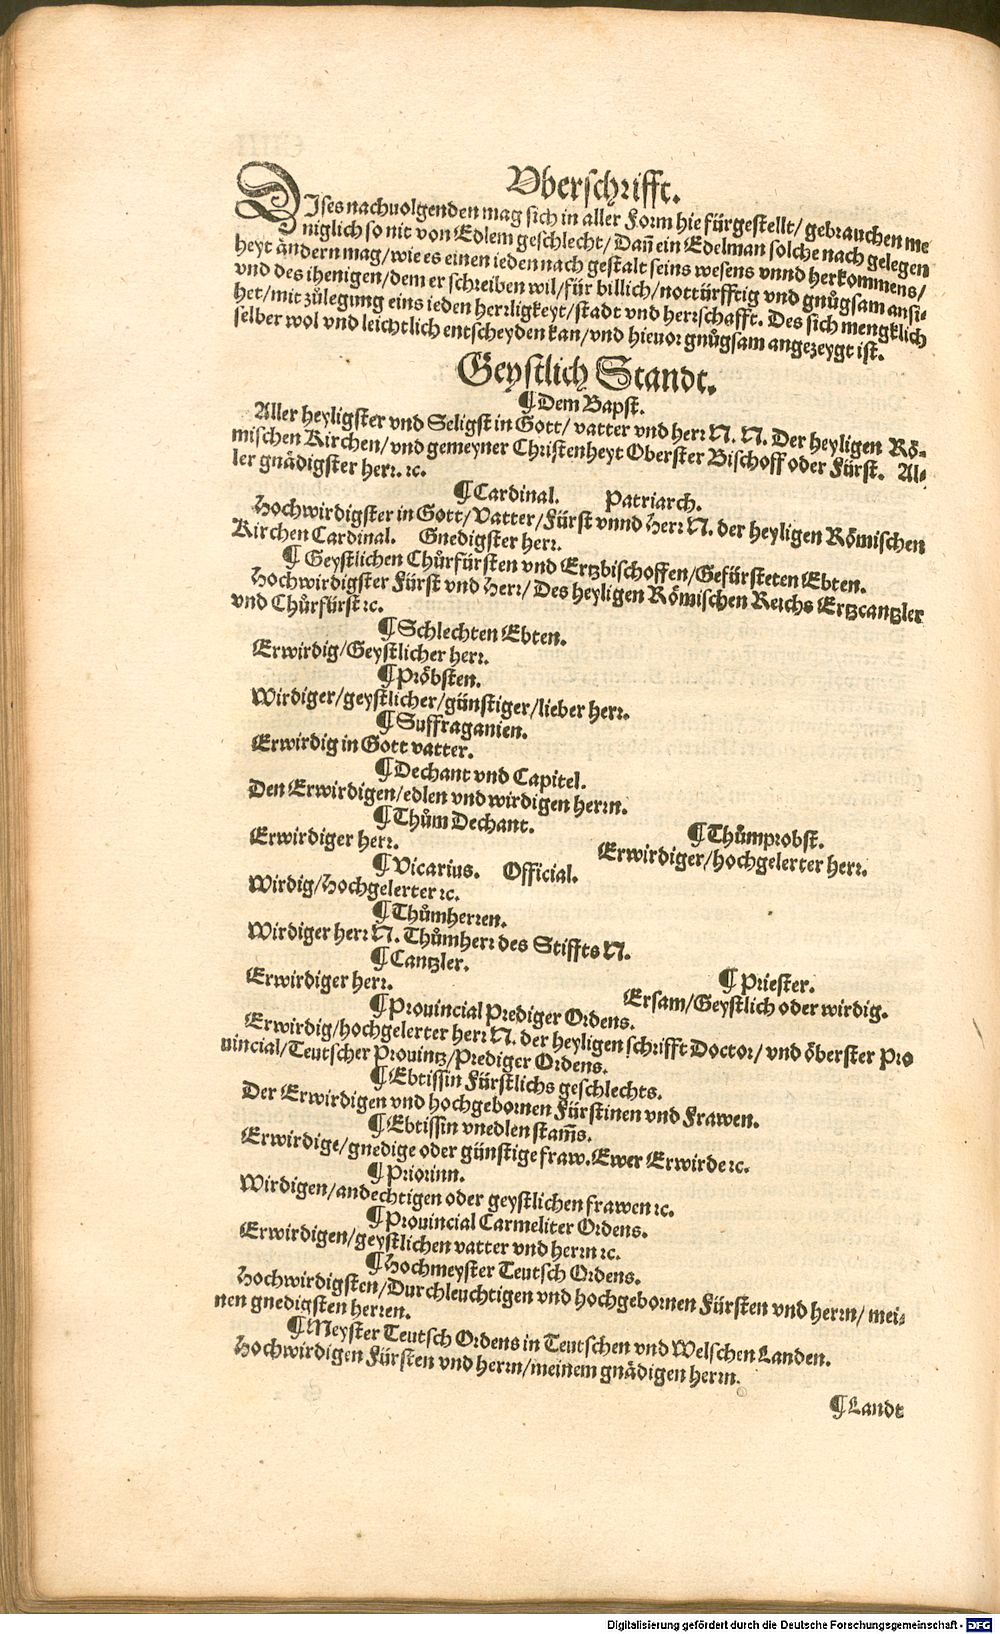 Vberschrifft.
DIses nachuolgenden mag sich in aller Form hie fürgestellt/ gebrauchen me
niglich so nit von Edlem geschlecht/ Dañ ein Edelman solche nach gelegen
heyt ändern mag/ wie es einen ieden nach gestalt seins wesens vnnd herkommens/
vnd des ihenigen/ dem er schreiben wil/ für billich/ nottürfftig vnd gnůgsam ansi-
het/ mit zůlegung eins ieden herrligkeyt/ stadt vnd herrschafft. Des sich mengklich
selber wol vnd leichtlich entscheyden kan/ vnd hieuor gnůgsam angezeygt ist.
Geystlich Standt.
¶ Dem Bapst.
Aller heyligster vnd Seligst in Gott/ vatter vnd herr N. N. Der heyligen Rö-
mischen Kirchen/ vnd gemeyner Christenheyt Oberster Bischoff oder Fürst. Al-
ler gnädigster herr. ꝛc.
¶ Cardinal. Patriarch.
Hochwirdigster in Gott/ Vatter/ Fürst vnnd Herr N. der heyligen Römischen
Kirchen Cardinal. Gnedigster herr.
¶ Geystlichen Chůrfürsten vnd Ertzbischoffen/ Gefürsteten Ebten.
Hochwirdigster Fürst vnd Herr/ Des heyligen Römischen Reichs Ertzcantzler
vnd Chůrfürst ꝛc.
¶ Schlechten Ebten.
Erwirdig/ Geystlicher herr.
¶ Pröbsten.
Wirdiger/ geystlicher/ günstiger/ lieber herr.
¶ Suffraganien.
Erwirdig in Gott vatter.
¶ Dechant vnd Capitel.
Den Erwirdigen/ edlen vnd wirdigen herrn.
¶ Thům Dechant. ¶ Thůmprobst.
Erwirdiger herr. Erwirdiger/ hochgelerter herr.
¶ Vicarius. Official.
Wirdig/ Hochgelerter ꝛc.
¶ Thůmherren.
Wirdiger herr N. Thůmherr des Stiffts N.
¶ Cantzler. ¶ Priester.
Erwirdiger herr. Ersam/ Geystlich oder wirdig.
¶ Prouincial Prediger Ordens.
Erwirdig/ hochgelerter herr N. der heyligen schrifft Doctor/ vnd öberster Pro
uincial/ Teutscher Prouintz/ Prediger Ordens.
¶ Ebtissin Fürstlichs geschlechts.
Der Erwirdigen vnd hochgebornen Fürstinen vnd Frawen.
¶ Ebtissin vnedlen stam̃s.
Erwirdige/ gnedige oder günstige fraw. Ewer Erwirde ꝛc.
¶ Priorinn.
Wirdigen/ andechtigen oder geystlichen frawen ꝛc.
¶ Prouincial Carmeliter Ordens.
Erwirdigen/ geystlichen vatter vnd herrn ꝛc.
¶ Hochmeyster Teutsch Ordens.
Hochwirdigsten/ Durchleuchtigen vnd hochgebornen Fürsten vnd herrn/ mei-
nen gnedigsten herren.
¶ Meyster Teutsch Ordens in Teutschen vnd Welschen Landen.
Hochwirdigen Fürsten vnd herrn/ meinem gnädigen herrn.
¶ Landt
Digitalisierung gefördert durch die Deutsche Forschungsgemeinschaft - DFG